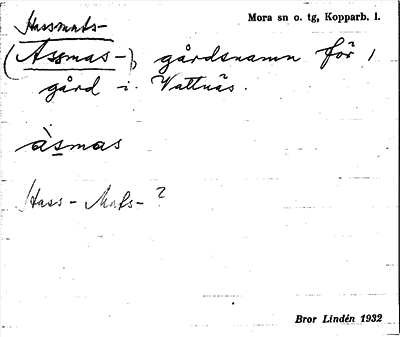 Hassmats-
Mora sn o. tg, Kopparb. l.
(Assmas-), gårdsnamn för 1
gård i Vattnäs.
àsmas
Hass-Mats-?
Bror Lindén 1932